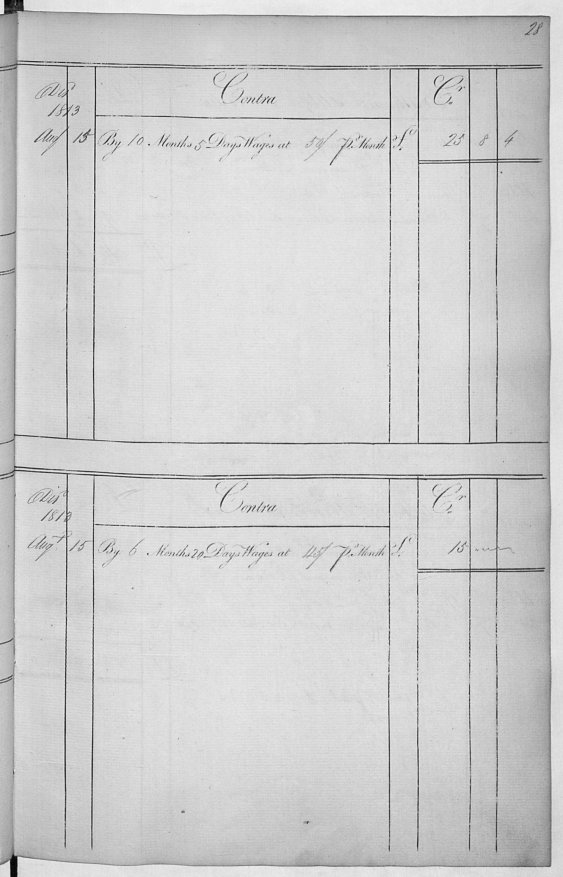 28
Contra Cr
1813
Augt 15 By 10 Months 5 Days Wages at 50/ pr Month £ 25 8 4
Contra Cr
1813
Augt 15 By 6 Months 20 Days Wages at 45/ pr Month £ 15